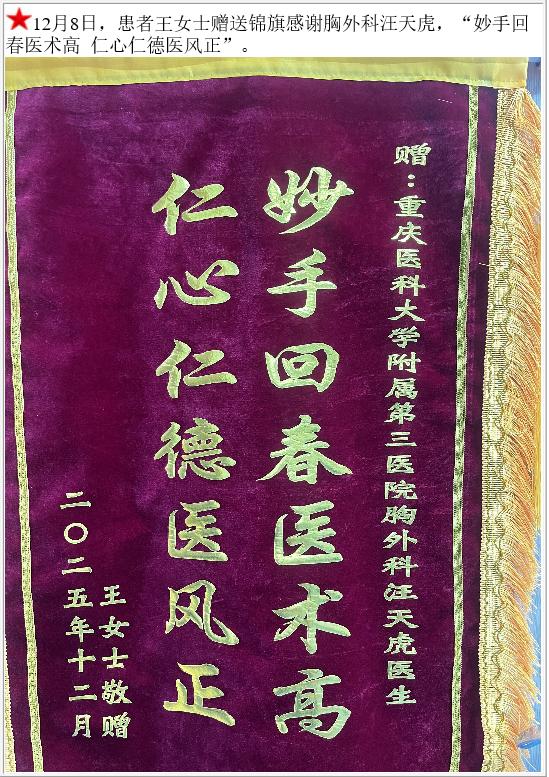 12月8日，患者王女士赠送锦旗感谢胸外科汪天虎，“妙手回
春医术高 仁心仁德医风正”。
赠：重庆医科大学附属第三医院胸外科汪天虎医生
妙手回春医术高
仁心仁德医风正
王女士敬赠
二〇二五年十二月